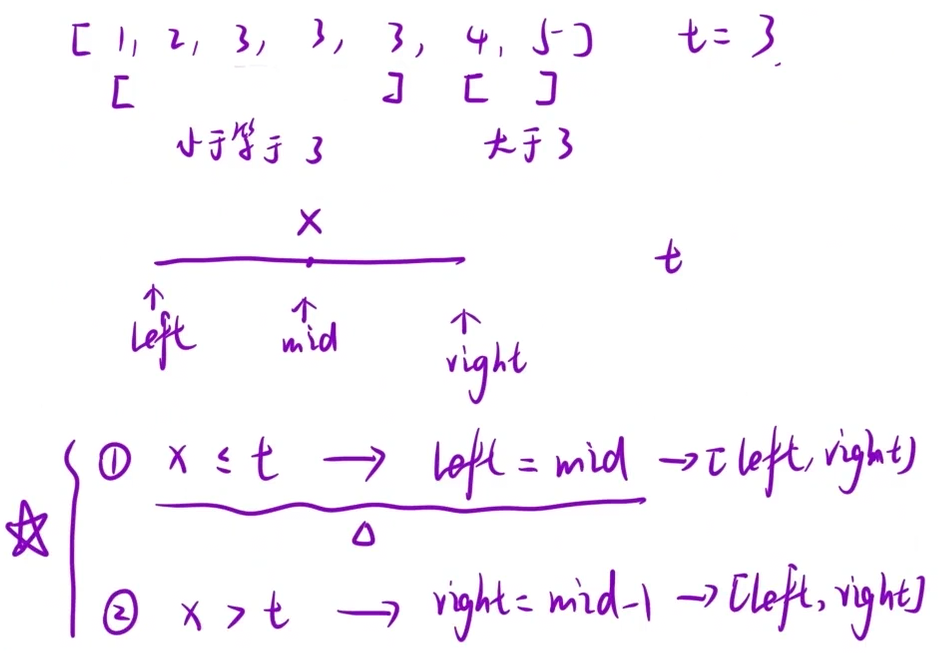 [ 1, 2, 3, 3, 3, 4, 5 ] t = 3.
[ ] [ ]
小于等于 3 大于 3
x
t
↑ ↑ ↑
left mid right
☆ { ① x ≤ t → left = mid → [left, right)
△
② x > t → right = mid-1 → [left, right]